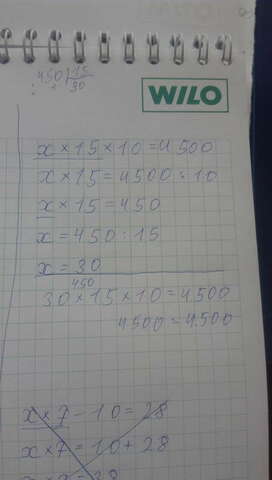 450 | 15
30
WILO
x × 15 × 10 = 4500
x × 15 = 4500 : 10
x × 15 = 450
x = 450 : 15
x = 30
450
30 × 15 × 10 = 4500
4500 = 4500
x × 7 - 10 = 28
x × 7 = 10 + 28